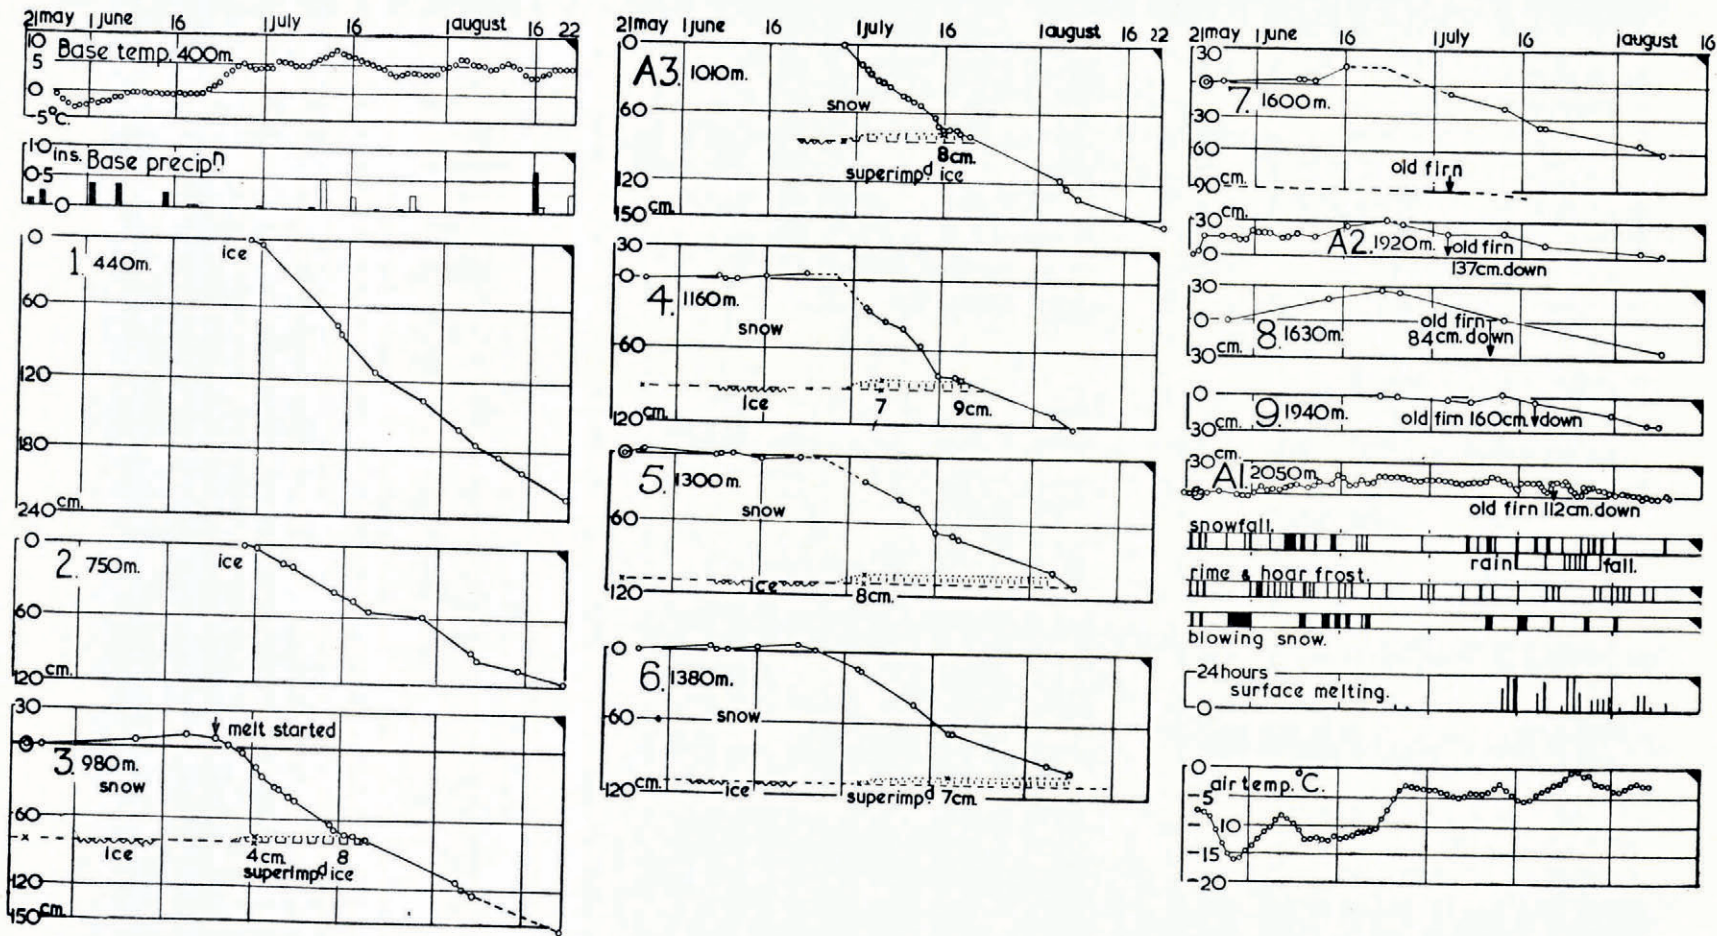 21 may 1 june 16 1 july 16 1 august 16 22
10
5
0
-5°C.
Base temp. 400m.
1·0
ins.
0·5
0
Base precipⁿ.
0
60
120
180
cm.
240
1. 440m.
ice
0
60
cm.
120
2. 750m.
ice
30
0
60
120
150 cm.
3. 980m.
snow
melt started
ice
4cm. 8
superimpᵈ ice
21 may 1 june 16 1 july 16 1 august 16 22
0
60
120
150 cm.
A3. 1010m.
snow
8cm.
superimpᵈ ice
30
0
60
120 cm.
4. 1160m.
snow
ice 7 9cm.
0
60
120
5. 1300m.
snow
ice 8cm.
0
60
cm.
120
6. 1380m.
snow
ice superimpᵈ 7cm.
21 may 1 june 16 1 july 16 1 august 16
30
0
30
60
90 cm.
7. 1600m.
old firn
cm.
30
0
A2. 1920m.
old firn
137cm.down
30
0
cm.
30
8. 1630m.
old firn
84cm.down
0
cm.
30
9. 1940m.
old firn 160cm. down
cm.
30
0
A1. 2050m.
old firn 112cm.down
snowfall.
rain fall.
rime & hoar frost.
blowing snow.
24 hours
surface melting.
0
0
-5
-10
-15
-20
air temp. °C.